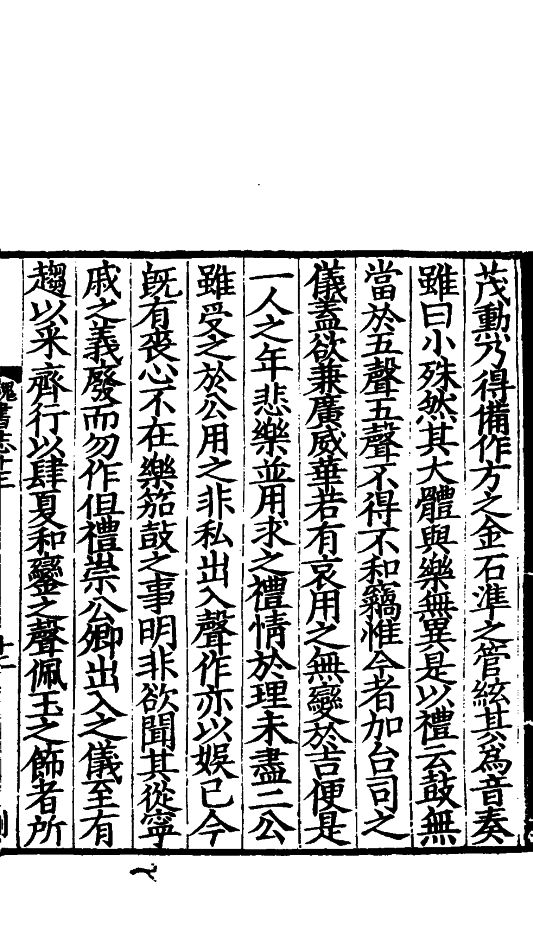 茂勳乃得備作方之金石準之管絃其爲音奏
雖曰小殊然其大體與樂無異是以禮云鼓無
當於五聲五聲不得不和竊惟今者加台司之
儀蓋欲兼廣威華若有哀用之無變於吉便是
一人之年悲樂並用求之禮情於理未盡二公
雖受之於公用之非私出入聲作亦以娛己今
旣有喪心不在樂笳鼓之事明非欲聞其從寧
戚之義廢而勿作但禮崇公卿出入之儀至有
趨以采齊行以肆夏和鑾之聲佩玉之飾者所
魏書志十三
十二